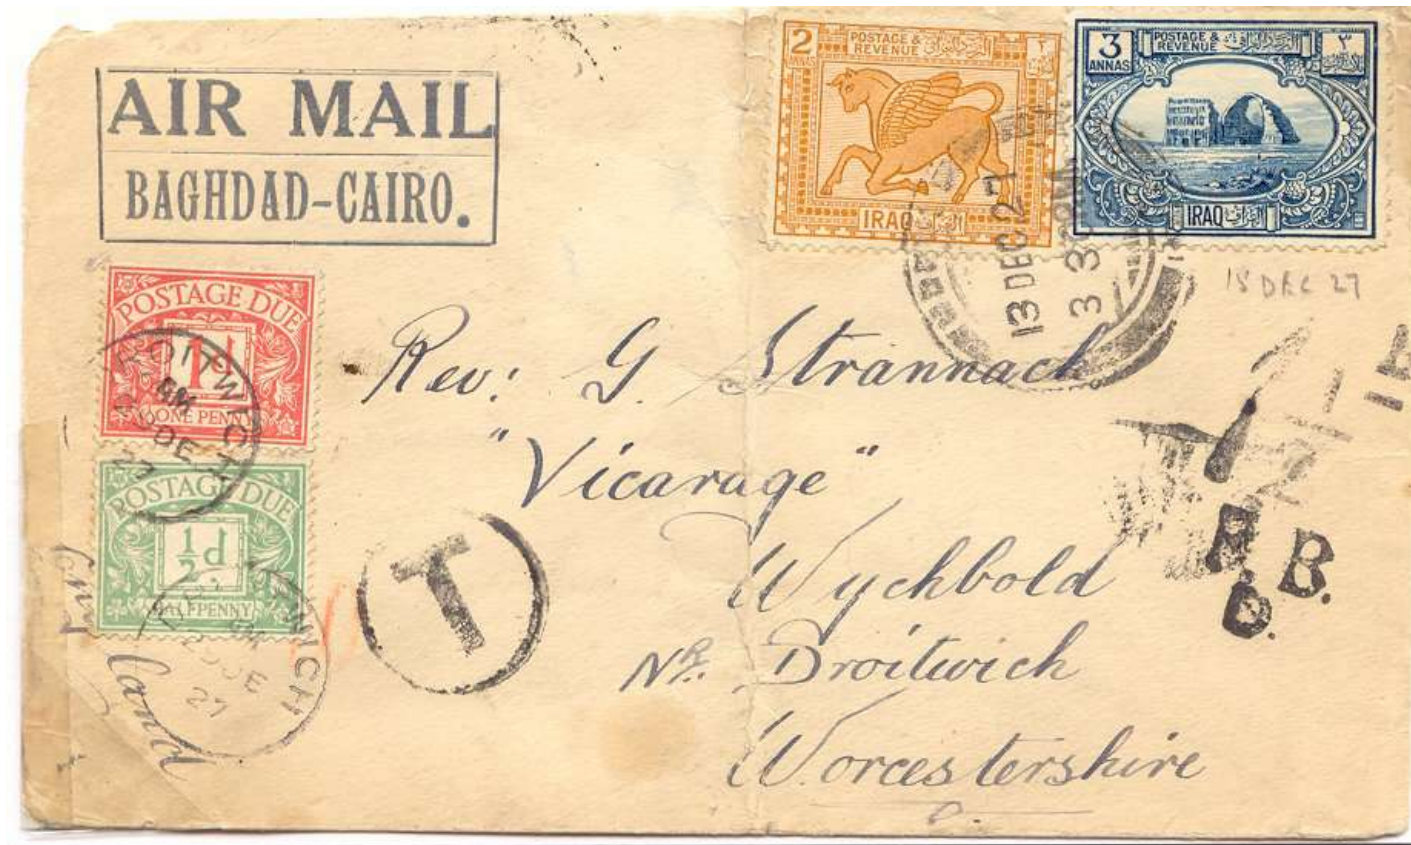 AIR MAIL
BAGHDAD-CAIRO.
2
ANNAS
POSTAGE &
REVENUE
٢
IRAQ العراق
3
ANNAS
POSTAGE &
REVENUE
٣
IRAQ العراق
13 DEC 27
3 3 PM
18 DEC 27
POSTAGE DUE
1d
ONE PENNY
DROITWICH
AM
DE
27
POSTAGE DUE
½d
HALFPENNY
27
T
Rev: G. Strannack
"Vicarage"
Wychbold
Nr. Droitwich
Worcestershire
1½
B.